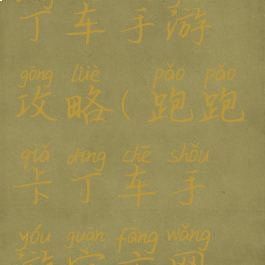 丁车手游
gōng lüè pǎo pǎo
攻略(跑跑
qiǎ dīng chē shǒu
卡丁车手
yóu guān fāng wǎng